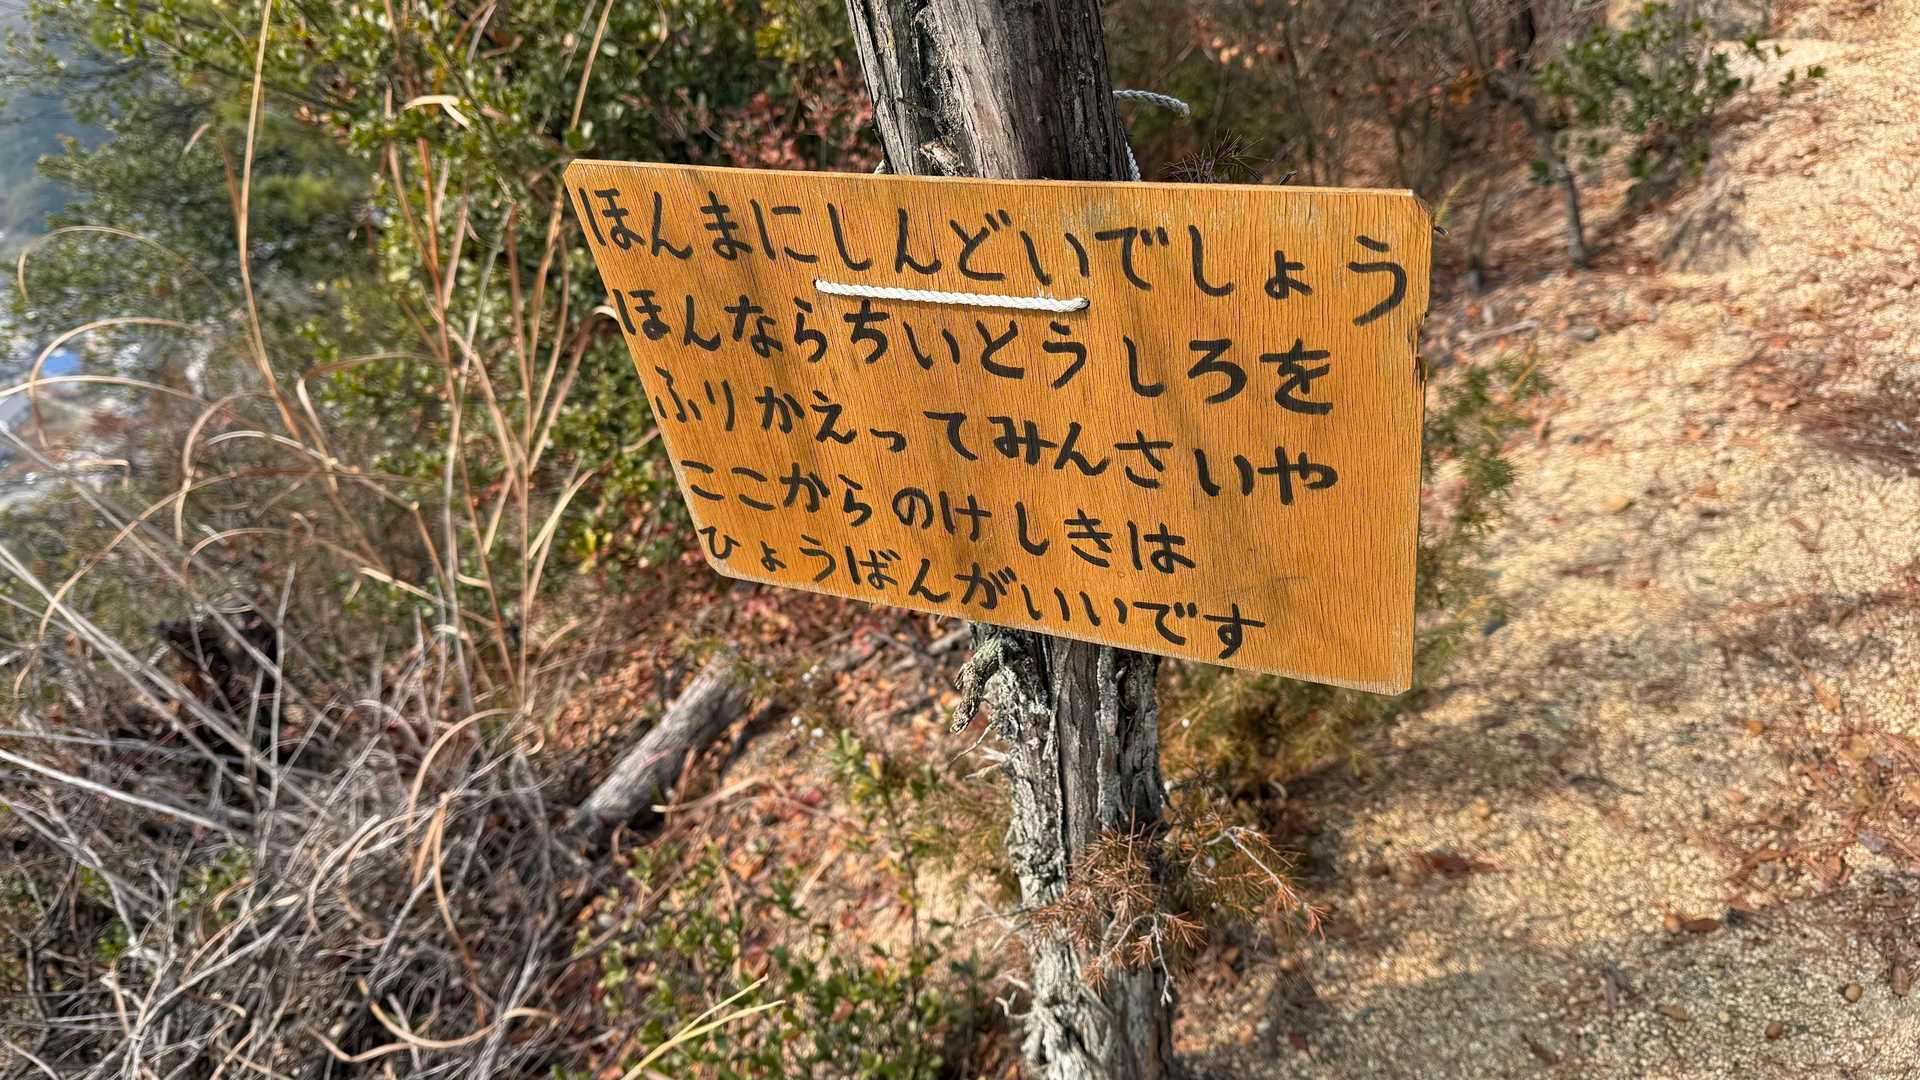 ほんまにしんどいでしょう
ほんならちいとうしろを
ふりかえってみんさいや
ここからのけしきは
ひょうばんがいいです